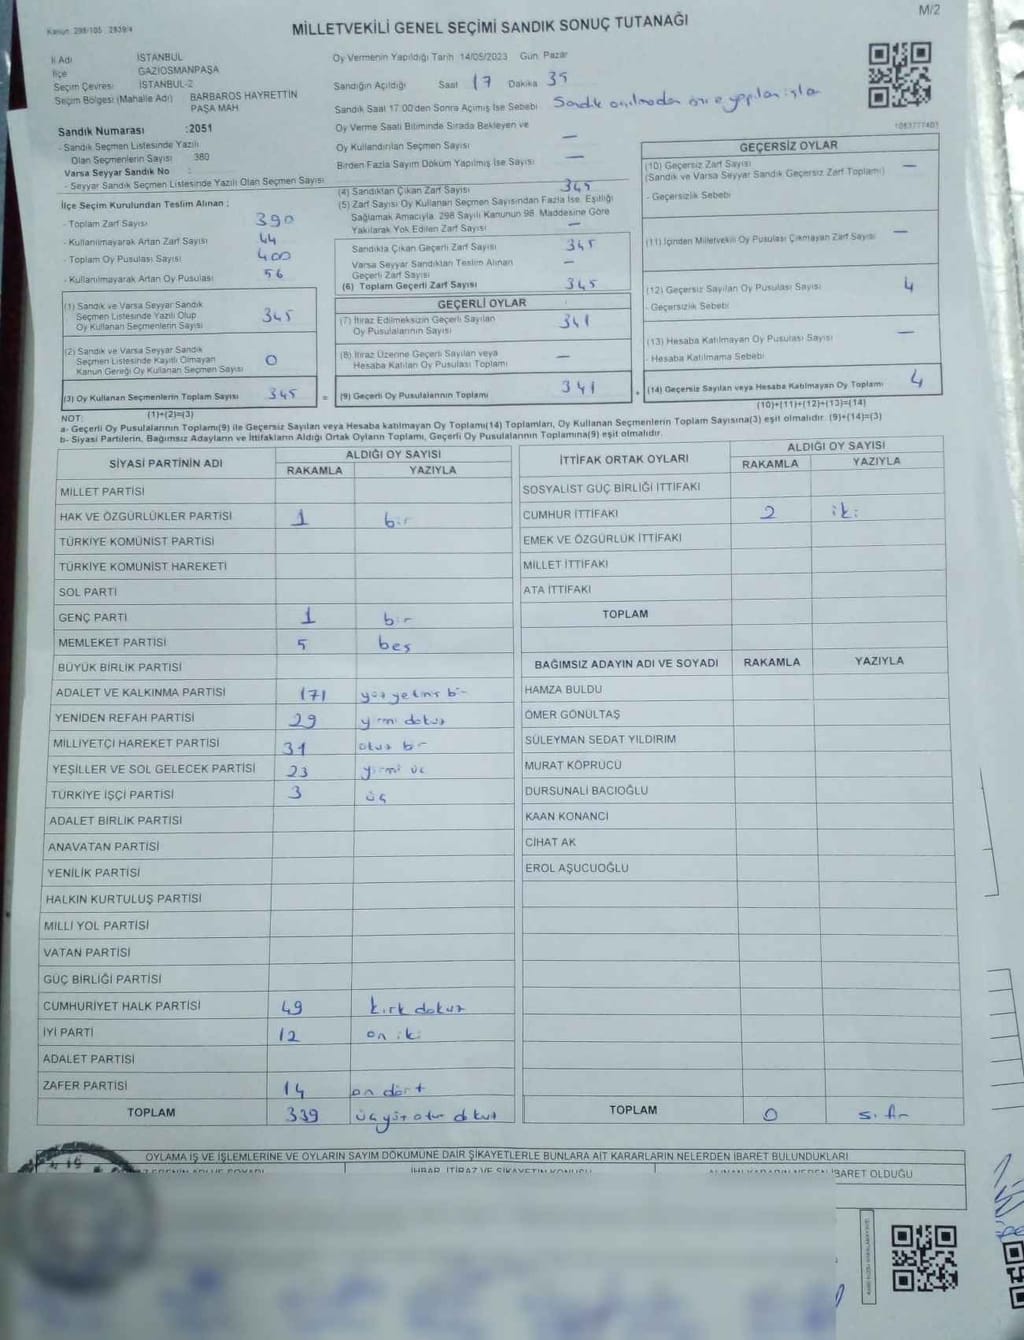 M/2
Kanun 298/105 2839/4
MİLLETVEKİLİ GENEL SEÇİMİ SANDIK SONUÇ TUTANAĞI
İl Adı İSTANBUL
İlçe GAZİOSMANPAŞA
Seçim Çevresi İSTANBUL-2
Seçim Bölgesi (Mahalle Adı) BARBAROS HAYRETTİN
PAŞA MAH
Sandık Numarası :2051
- Sandık Seçmen Listesinde Yazılı
Olan Seçmenlerin Sayısı 380
Varsa Seyyar Sandık No :
- Seyyar Sandık Seçmen Listesinde Yazılı Olan Seçmen Sayısı
Oy Vermenin Yapıldığı Tarih 14/05/2023 Gün Pazar
Sandığın Açıldığı Saat 17 Dakika 35
Sandık Saat 17:00'den Sonra Açılmış İse Sebebi Sandık açılmadan önce yapılan işler
Oy Verme Saati Bitiminde Sırada Bekleyen ve
Oy Kullandırılan Seçmen Sayısı —
Birden Fazla Sayım Döküm Yapılmış İse Sayısı —
1063777401
İlçe Seçim Kurulundan Teslim Alınan :
- Toplam Zarf Sayısı 390
- Kullanılmayarak Artan Zarf Sayısı 44
- Toplam Oy Pusulası Sayısı 400
- Kullanılmayarak Artan Oy Pusulası 56
(1) Sandık ve Varsa Seyyar Sandık
Seçmen Listesinde Yazılı Olup
Oy Kullanan Seçmenlerin Sayısı 345
(2) Sandık ve Varsa Seyyar Sandık
Seçmen Listesinde Kayıtlı Olmayan
Kanun Gereği Oy Kullanan Seçmen Sayısı 0
(3) Oy Kullanan Seçmenlerin Toplam Sayısı 345
(1)+(2)=(3)
(4) Sandıktan Çıkan Zarf Sayısı 345
(5) Zarf Sayısı Oy Kullanan Seçmen Sayısından Fazla İse, Eşitliği
Sağlamak Amacıyla 298 Sayılı Kanunun 98. Maddesine Göre
Yakılarak Yok Edilen Zarf Sayısı —
Sandıkta Çıkan Geçerli Zarf Sayısı 345
Varsa Seyyar Sandıktan Teslim Alınan
Geçerli Zarf Sayısı —
(6) Toplam Geçerli Zarf Sayısı 345
GEÇERLİ OYLAR
(7) İtiraz Edilmeksizin Geçerli Sayılan
Oy Pusulalarının Sayısı 341
(8) İtiraz Üzerine Geçerli Sayılan veya
Hesaba Katılan Oy Pusulası Toplamı —
= (9) Geçerli Oy Pusulalarının Toplamı 341
GEÇERSİZ OYLAR
(10) Geçersiz Zarf Sayısı —
(Sandık ve Varsa Seyyar Sandık Geçersiz Zarf Toplamı)
- Geçersizlik Sebebi
(11) İçinden Milletvekili Oy Pusulası Çıkmayan Zarf Sayısı —
(12) Geçersiz Sayılan Oy Pusulası Sayısı 4
- Geçersizlik Sebebi
(13) Hesaba Katılmayan Oy Pusulası Sayısı —
- Hesaba Katılmama Sebebi
+ (14) Geçersiz Sayılan veya Hesaba Katılmayan Oy Toplamı 4
(10)+(11)+(12)+(13)=(14)
NOT:
a- Geçerli Oy Pusulalarının Toplamı(9) ile Geçersiz Sayılan veya Hesaba katılmayan Oy Toplamı(14) Toplamları, Oy Kullanan Seçmenlerin Toplam Sayısına(3) eşit olmalıdır. (9)+(14)=(3)
b- Siyasi Partilerin, Bağımsız Adayların ve İttifakların Aldığı Ortak Oyların Toplamı, Geçerli Oy Pusulalarının Toplamına(9) eşit olmalıdır.
SİYASİ PARTİNİN ADI ALDIĞI OY SAYISI
RAKAMLA YAZIYLA
MİLLET PARTİSİ
HAK VE ÖZGÜRLÜKLER PARTİSİ 1 bir
TÜRKİYE KOMÜNİST PARTİSİ
TÜRKİYE KOMÜNİST HAREKETİ
SOL PARTİ
GENÇ PARTİ 1 bir
MEMLEKET PARTİSİ 5 beş
BÜYÜK BİRLİK PARTİSİ
ADALET VE KALKINMA PARTİSİ 171 yüz yetmiş bir
YENİDEN REFAH PARTİSİ 29 yirmi dokuz
MİLLİYETÇİ HAREKET PARTİSİ 31 otuz bir
YEŞİLLER VE SOL GELECEK PARTİSİ 23 yirmi üç
TÜRKİYE İŞÇİ PARTİSİ 3 üç
ADALET BİRLİK PARTİSİ
ANAVATAN PARTİSİ
YENİLİK PARTİSİ
HALKIN KURTULUŞ PARTİSİ
MİLLİ YOL PARTİSİ
VATAN PARTİSİ
GÜÇ BİRLİĞİ PARTİSİ
CUMHURİYET HALK PARTİSİ 49 kırk dokuz
İYİ PARTİ 12 on iki
ADALET PARTİSİ
ZAFER PARTİSİ 14 on dört
TOPLAM 339 üçyüz otuz dokuz
İTTİFAK ORTAK OYLARI ALDIĞI OY SAYISI
RAKAMLA YAZIYLA
SOSYALİST GÜÇ BİRLİĞİ İTTİFAKI
CUMHUR İTTİFAKI 2 iki
EMEK VE ÖZGÜRLÜK İTTİFAKI
MİLLET İTTİFAKI
ATA İTTİFAKI
TOPLAM
BAĞIMSIZ ADAYIN ADI VE SOYADI RAKAMLA YAZIYLA
HAMZA BULDU
ÖMER GÖNÜLTAŞ
SÜLEYMAN SEDAT YILDIRIM
MURAT KÖPRÜCÜ
DURSUNALİ BACIOĞLU
KAAN KONANCI
CİHAT AK
EROL AŞUCUOĞLU
TOPLAM 0 sıfır
OYLAMA İŞ VE İŞLEMLERİNE VE OYLARIN SAYIM DÖKÜMÜNE DAİR ŞİKAYETLERLE BUNLARA AİT KARARLARIN NELERDEN İBARET BULUNDUKLARI
İHBAR, İTİRAZ VE ŞİKAYETİN KONUSU
İBARET OLDUĞU